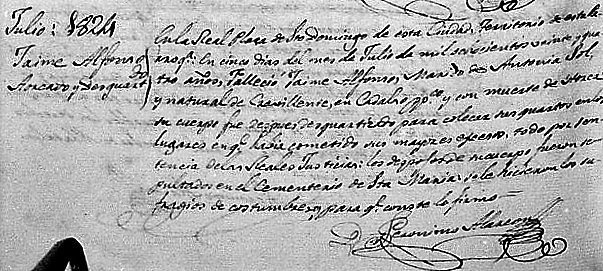 Julio: 1824
Jaime Alfonso
Aorcado y Desquart.do
En la Real Plaza de Sto Domingo de esta Ciudad, Territorio de esta Pa
rroq.a: En cinco dias del mes de Julio de mil ochocientos veinte y qua
tro años, Fallecio Jaime Alfonso, Marido de Antonia Sol,
y natural de Crevillente, en Cadalso pp.co y con muerte de Horca
su cuerpo fue despues desquartizado para colocar sus quartos en los
lugares en q.e habia cometido sus mayores excesos, todo por sen
tencia de las Reales Justicias: los despojos de su cuerpo fueron se
pultados en el Cementerio de Sta Maria: se le hicieron los su
fragios de costumbre, y para q.e conste lo firmo =
Geronimo Alarcon